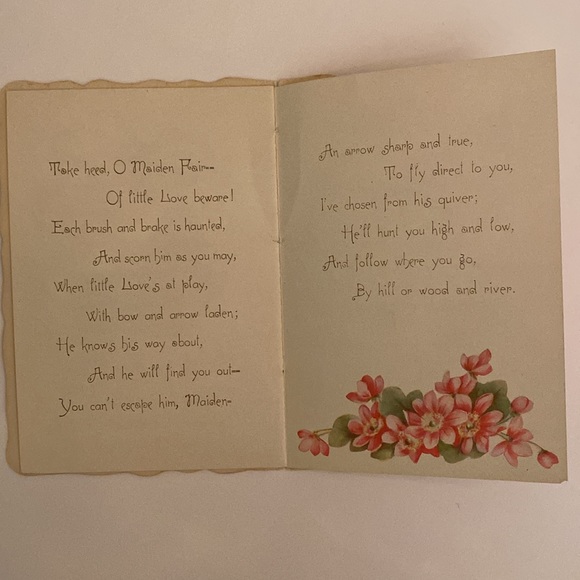 Take heed, O Maiden Fair--
Of little Love beware!
Each brush and brake is haunted,
And scorn him as you may,
When little Love's at play,
With bow and arrow laden;
He knows his way about,
And he will find you out—
You can't escape him, Maiden-
An arrow sharp and true,
To fly direct to you,
I've chosen from his quiver;
He'll hunt you high and low,
And follow where you go,
By hill or wood and river.